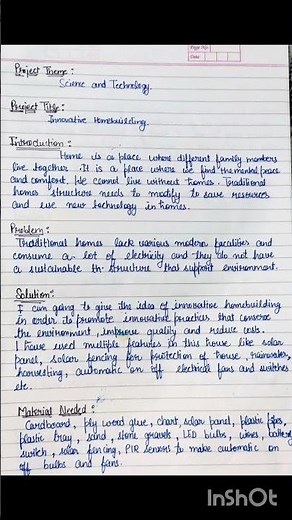 Page No.
Date
Project Theme :
Science and Technology.
Project Title :
Innovative Homebuilding.
Introduction :
Home is a place where different family members
live together. It is a place where we find the mental peace
and comfort. We cannot live without homes. Traditional
homes structure needs to modify to save resources
and use new technology in homes.
Problem :
Traditional homes lack various modern facilities and
consume a lot of electricity and they do not have
a sustainable th structure that support environment.
Solution :
I am going to give the idea of innovative homebuilding
in order to promote innovative practices that conserve
the environment, improve quality and reduce cost.
I have used multiple features in this house like solar
panel, solar fencing for protection of house, rainwater
harvesting, automatic on off electrical fans and switches
etc.
Material Needed :
Cardboard, ply wood glue, chart, solar panel, plastic pipes,
plastic tray, sand, stone gravels, LED bulbs, wires, battery
switch, solar fencing, PIR sensors to make automatic on
off bulbs and fans.
InShOt